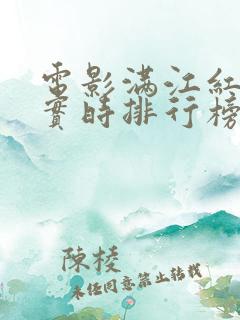 電影滿江紅
實時排行榜
陳棱
未經同意禁止轉載